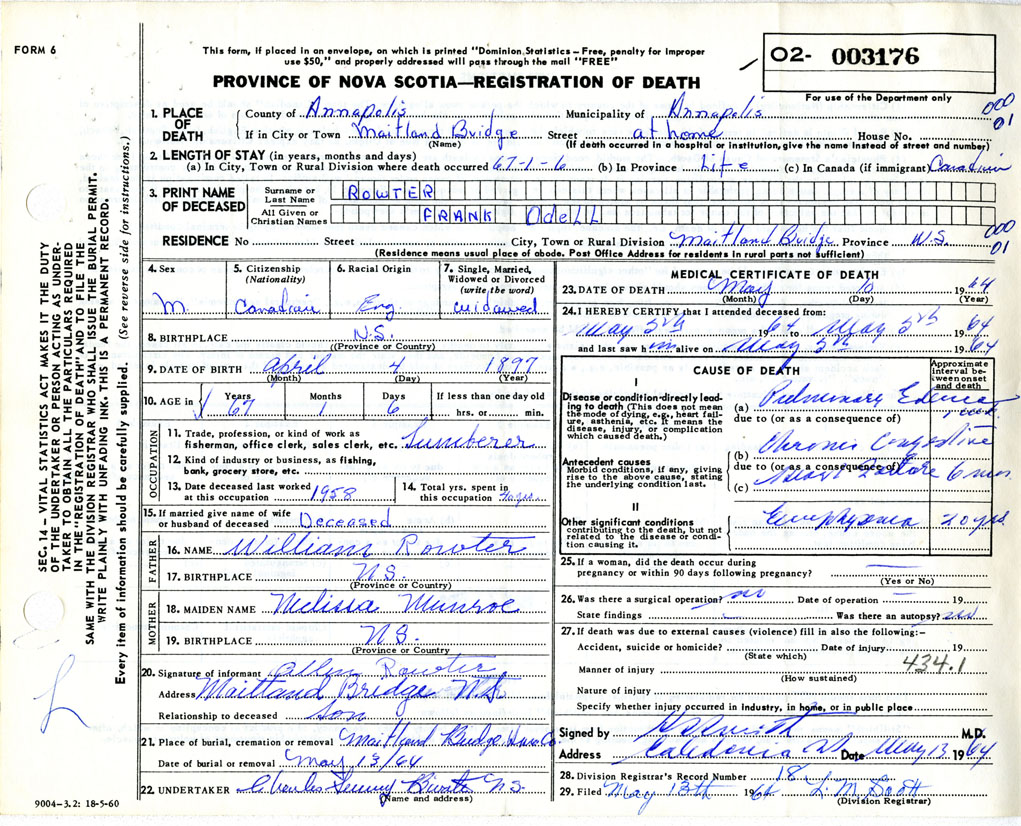 FORM 6
This form, if placed in an envelope, on which is printed "Dominion Statistics – Free, penalty for improper
use $50," and properly addressed will pass through the mail "FREE"
PROVINCE OF NOVA SCOTIA—REGISTRATION OF DEATH
02- 003176
For use of the Department only
SEC. 14 – VITAL STATISTICS ACT MAKES IT THE DUTY
OF THE UNDERTAKER OR PERSON ACTING AS UNDER-
TAKER TO OBTAIN ALL THE PARTICULARS REQUIRED
IN THE "REGISTRATION OF DEATH" AND TO FILE THE
SAME WITH THE DIVISION REGISTRAR WHO SHALL ISSUE THE BURIAL PERMIT.
WRITE PLAINLY WITH UNFADING INK. THIS IS A PERMANENT RECORD.
Every item of information should be carefully supplied. (See reverse side for instructions.)
1. PLACE OF DEATH
County of Annapolis Municipality of Annapolis
000
01
If in City or Town Maitland Bridge Street at home House No.
(Name) (If death occurred in a hospital or institution, give the name instead of street and number)
2. LENGTH OF STAY (in years, months and days)
(a) In City, Town or Rural Division where death occurred 67-1-6 (b) In Province Life (c) In Canada (if immigrant) Canadian
3. PRINT NAME OF DECEASED
Surname or Last Name ROWTER
All Given or Christian Names FRANK OdELL
RESIDENCE No. Street City, Town or Rural Division Maitland Bridge Province N.S.
000
01
(Residence means usual place of abode. Post Office Address for residents in rural parts not sufficient)
4. Sex M.
5. Citizenship (Nationality) Canadian
6. Racial Origin Eng.
7. Single, Married, Widowed or Divorced (write the word) widowed
8. BIRTHPLACE N.S.
(Province or Country)
9. DATE OF BIRTH April 4 1897
(Month) (Day) (Year)
10. AGE in Years 67 Months 1 Days 6 If less than one day old
hrs. or min.
OCCUPATION
11. Trade, profession, or kind of work as
fisherman, office clerk, sales clerk, etc. Lumberer
12. Kind of industry or business, as fishing,
bank, grocery store, etc.
13. Date deceased last worked at this occupation 1958
14. Total yrs. spent in this occupation
15. If married give name of wife or husband of deceased Deceased
FATHER
16. NAME William Rowter
17. BIRTHPLACE N.S.
(Province or Country)
MOTHER
18. MAIDEN NAME Melissa Munroe
19. BIRTHPLACE N.S.
(Province or Country)
20. Signature of informant Allen Rowter
Address Maitland Bridge N.S.
Relationship to deceased Son
21. Place of burial, cremation or removal Maitland Bridge
Date of burial or removal May 13/64
22. UNDERTAKER Charles N.S.
(Name and address)
9004–3.2: 18-5-60
MEDICAL CERTIFICATE OF DEATH
23. DATE OF DEATH May 10 1964
(Month) (Day) (Year)
24. I HEREBY CERTIFY that I attended deceased from:
May 5th 1964 to May 5th 64
and last saw him alive on May 5th 1964
CAUSE OF DEATH
Approximate interval between onset and death
I
Disease or condition directly lead-
ing to death (This does not mean
the mode of dying, e.g., heart fail-
ure, asthenia, etc. It means the
disease, injury, or complication
which caused death.)
(a) Pulmonary Edema
due to (or as a consequence of)
(b) Chronic Congestive
Antecedent causes
Morbid conditions, if any, giving
rise to the above cause, stating
the underlying condition last.
due to (or as a consequence of)
Heart Failure 6 mos.
(c)
II
Other significant conditions
contributing to the death, but not
related to the disease or condi-
tion causing it.
Emphysema 20 yrs.
25. If a woman, did the death occur during
pregnancy or within 90 days following pregnancy? —
(Yes or No)
26. Was there a surgical operation? no Date of operation – 19
State findings Was there an autopsy? no
27. If death was due to external causes (violence) fill in also the following:–
Accident, suicide or homicide? Date of injury 19
(State which)
434.1
Manner of injury
(How sustained)
Nature of injury
Specify whether injury occurred in industry, in home, or in public place
Signed by Smith M.D.
Address Caledonia NS Date May 13 1964
28. Division Registrar's Record Number 18
29. Filed May 13th 1964 L. M. Scott
(Division Registrar)